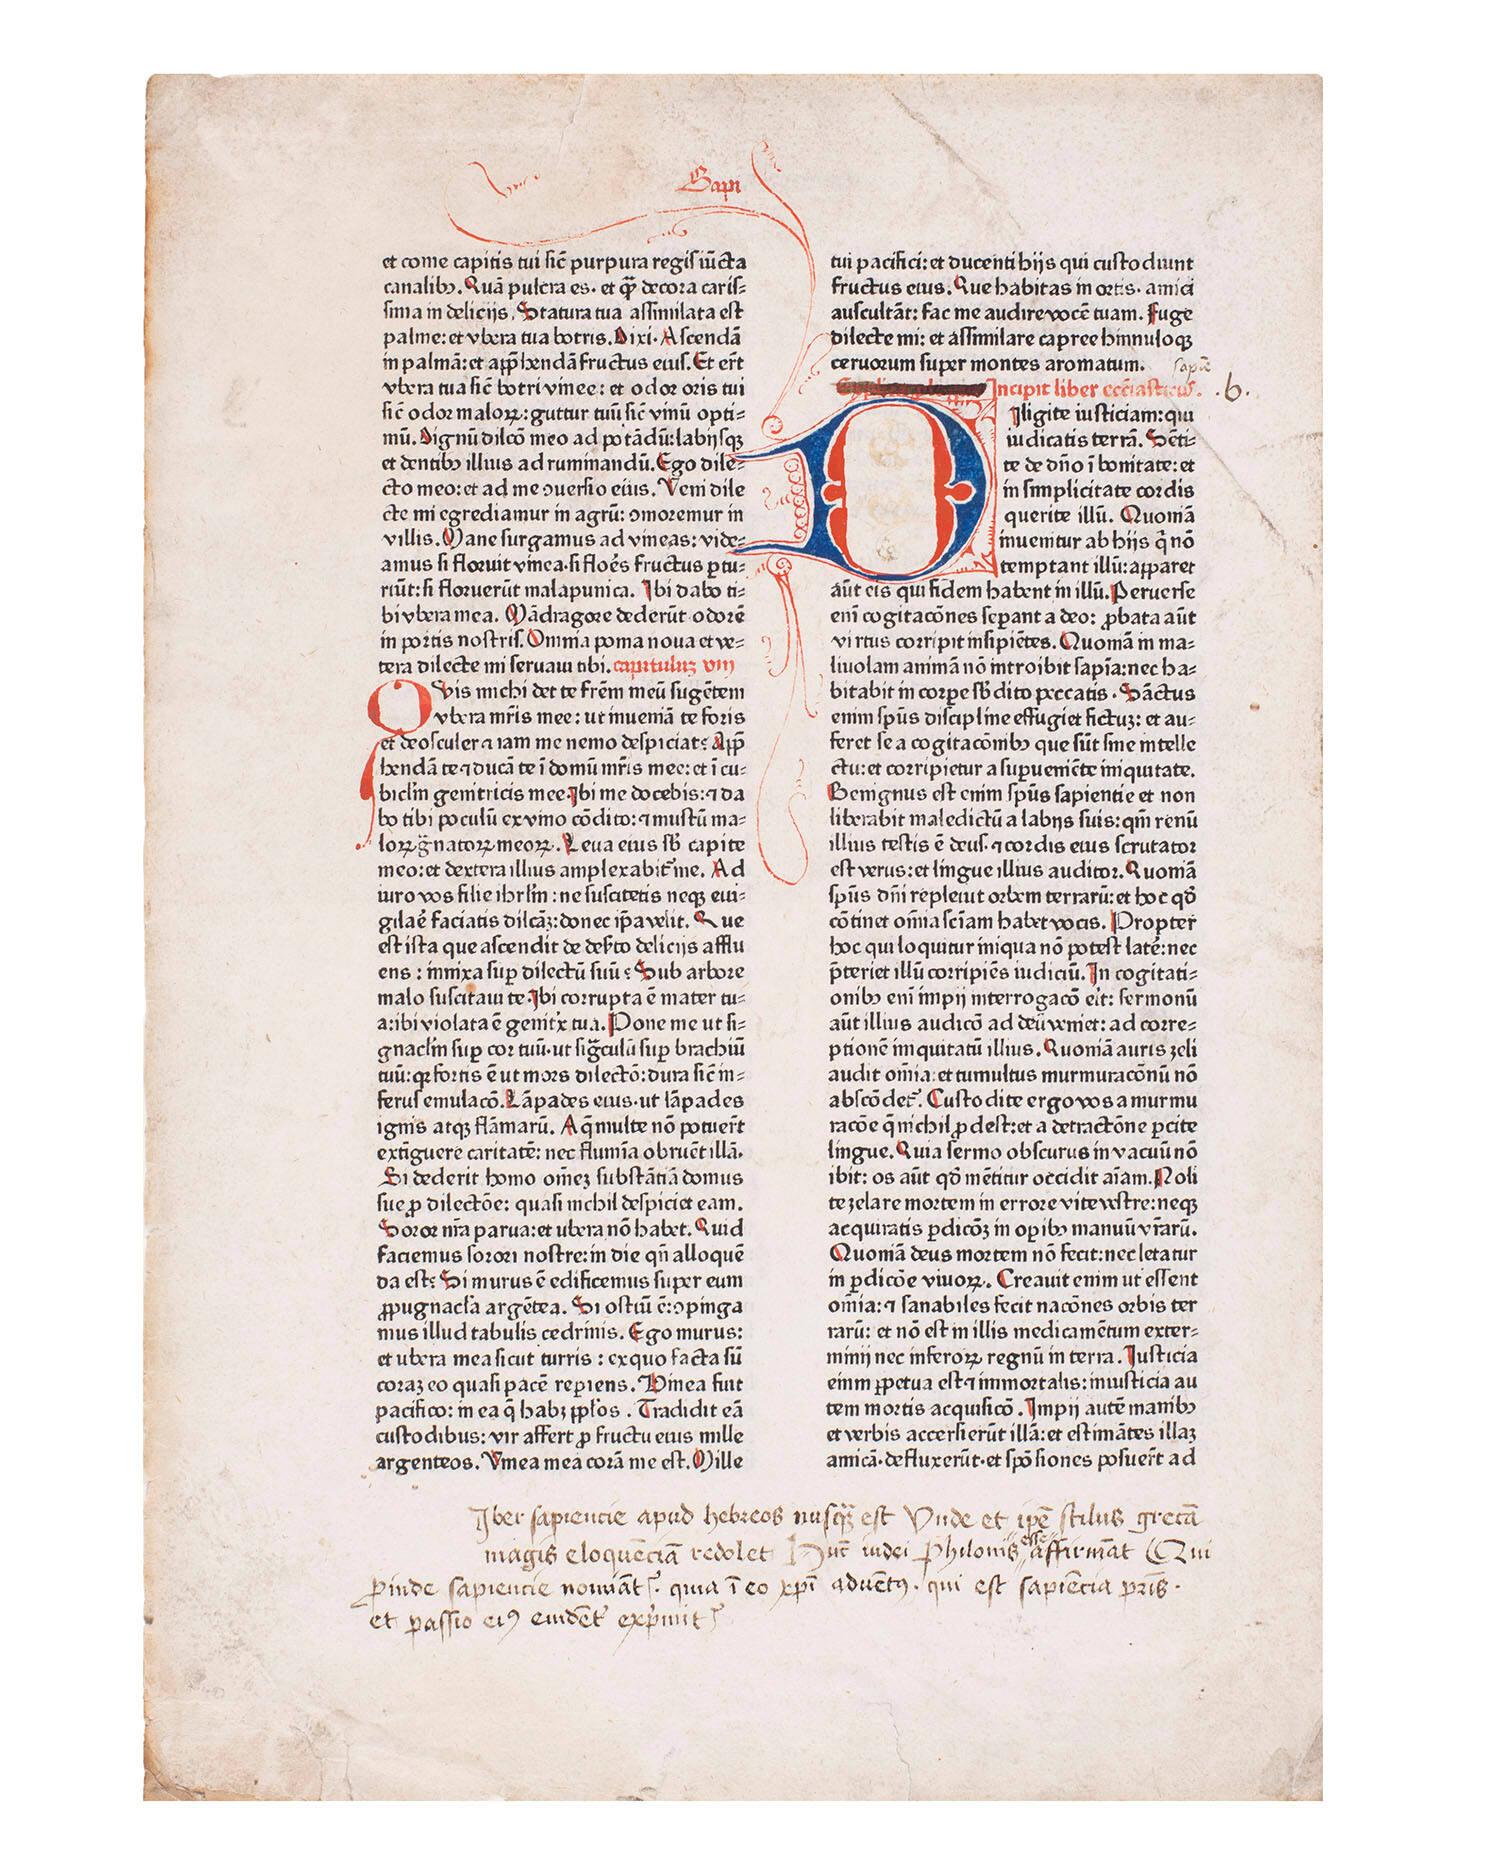 Sapi
et come capitis tui sic̄ purpura regis iūcta
canalibꝰ. Quā pulcra es· et q̄ꝫ decora caris⸗
sima in delicijs. Statura tua assimilata est
palme: et vbera tua botris. Dixi· Ascendā
in palmā: et app̄hendā fructus eius. Et er̄t
vbera tua sic̄ botri vinee: et odor oris tui
sic̄ odor maloꝝ: guttur tuū sic̄ vinū opti⸗
mū. Dignū dilc̄o meo ad potādū: labijsqꝫ
et dentibꝰ illius ad ruminandū. Ego dile⸗
cto meo: et ad me ꝯuersio eius. Veni dile
cte mi egrediamur in agrū: ꝯmoremur in
villis. Mane surgamus ad vineas: vide⸗
amus si floruit vinea· si floēs fructus ꝑtu⸗
riūt: si floruerūt malapunica. Ibi dabo ti⸗
bi vbera mea. Mādragore dederūt odorē
in portis nostris. Omnia poma noua et ve⸗
tera dilecte mi seruaui tibi. capituluꝫ viij
Quis michi det te fr̄em meū sugētem
vbera mr̄is mee: ut inueniā te foris
et deosculer ⁊ iam me nemo despiciat: App̄
hendā te ⁊ ducā te ī domū mr̄is mee: et ī cu⸗
bicl̄m genitricis mee. Ibi me docebis: ⁊ da
bo tibi poculū ex vino cōdito: ⁊ mustū ma⸗
loꝝ g̈natoꝝ meoꝝ. Leua eius sb̄ capite
meo: et dextera illius amplexabit᷑ me. Ad
iuro vos filie ihrlm̄: ne suscitetis neqꝫ eui⸗
gilaē faciatis dilc̄aꝫ: donec ip̄a velit. Que
est ista que ascendit de deb̄to delicijs afflu
ens: innixa suꝑ dilectū suū: Sub arbore
malo suscitaui te· Ibi corrupta ē mater tu⸗
a: ibi violata ē genit̄x tua. Pone me ut si⸗
gnacl̄m suꝑ cor tuū· ut sig̈culū suꝑ brachiū
tuū: qꝛ fortis ē ut mors dilectō: dura sic̄ in⸗
ferus emulacō. Lāpades eius· ut lāpades
ignis atqꝫ flāmarū. Aq̄ multe nō potuer̄t
extīguere caritatē: nec flumīa obruēt illā.
Si dederit homo om̄eꝫ substātiā domus
sue ꝓ dilectōe: quasi nichil despiciet eam.
Soror nr̄a parua: et ubera nō habet. Quid
faciemus sorori nostre: in die qn̄ alloquē
da est: Si murus ē edificemus super eum
ꝓpugnacl̄a argētea. Si ostiū ē: ꝯpinga
mus illud tabulis cedrinis. Ego murus:
et ubera mea sicut turris: ex quo facta sū
coraꝫ eo quasi pacē reꝑiens. Vinea fuit
pacifico: in ea q̄ habꝫ pp̄los. Tradidit eā
custodibus: vir affert ꝓ fructu eius mille
argenteos. Vinea mea corā me est. Mille
tui pacifici: et ducenti hijs qui custodiunt
fructus eius. Que habitas in ortis· amici
auscultāt: fac me audire vocē tuam. Fuge
dilecte mi: et assimilare capree hinnuloqꝫ
ceruorum super montes aromatum.
sapiē
Incipit liber eccl̄iasticus. .b.
Diligite iusticiam: qui
iudicatis terrā. Sēti⸗
te de dn̄o ī bonitate: et
in simplicitate cordis
querite illū. Quoniā
inuenitur ab hijs q̄ nō
temptant illū: apparet
aūt eis qui fidem habent in illū. Peruerse
eni᷑ cogitacōnes seꝑant a deo: ꝓbata aūt
virtus corripit insipiētes. Quoniā in ma⸗
liuolam animā nō introibit sapīa: nec ha⸗
bitabit in corꝑe sb̄dito peccatis. Sāctus
enim sp̄us discipline effugiet fictuꝫ: et au⸗
feret se a cogitacōnibꝰ que sūt sine intelle
ctu: et corripietur a suꝑueniēte iniquitate.
Benignus est enim sp̄us sapientie et non
liberabit maledictū a labijs suis: qm̄ renū
illius testis ē deus· ⁊ cordis eius scrutator
est verus: et lingue illius auditor. Quoniā
sp̄us dn̄i repleuit orbem terrarū: et hoc qd̄
cōtinet om̄ia sciam̄ habet vocis. Propter
hoc qui loquitur iniqua nō potest latē: nec
p̄teriet illū corripiēs iudiciū. In cogitati⸗
onibꝰ eni᷑ impij interrogacō eīt: sermonū
aūt illius audicō ad deū veniet: ad corre⸗
ptionē iniquitatū illius. Quoniā auris zeli
audit om̄ia: et tumultus murmuracōnū nō
abscōdet᷑. Custodite ergo vos a murmu
racōe q̄ nichil ꝓdest: et a detractōne ꝑcite
lingue. Quia sermo obscurus in vacuū nō
ibit: os aūt qd̄ mētitur occidit aīam. Noli
te zelare mortem in errore vite vestre: neqꝫ
acquiratis ꝑdicōꝫ in oꝑibꝰ manuū vr̄arū.
Quoniā deus mortem nō fecit: nec letatur
in ꝑdicōe viuoꝝ. Creauit enim ut essent
om̄ia: ⁊ sanabiles fecit nacōnes orbis ter
rarū: et nō est in illis medicamētum exter⸗
minij nec inferoꝝ regnū in terra. Justicia
enim ꝑpetua est ⁊ immortalis: iniusticia au
tem mortis acquisicō. Impij autē manibꝰ
et verbis accersierūt illā: et estimātes illaꝫ
amicā· defluxerūt· et spōsiones posuer̄t ad
Iber sapiencie apud hebreos nusq̄ꝫ est Vnde et ip̄e stilus grecā
magis eloquēciam redolet Hūc iudei Philonis esse affirmāt Qui
ꝓinde sapiencie noīant᷑. quia ī eo xp̄i aduētꝰ. qui est sapiēcia pr̄is.
et passio eiꝰ euidēt᷑ exp̄mit᷑